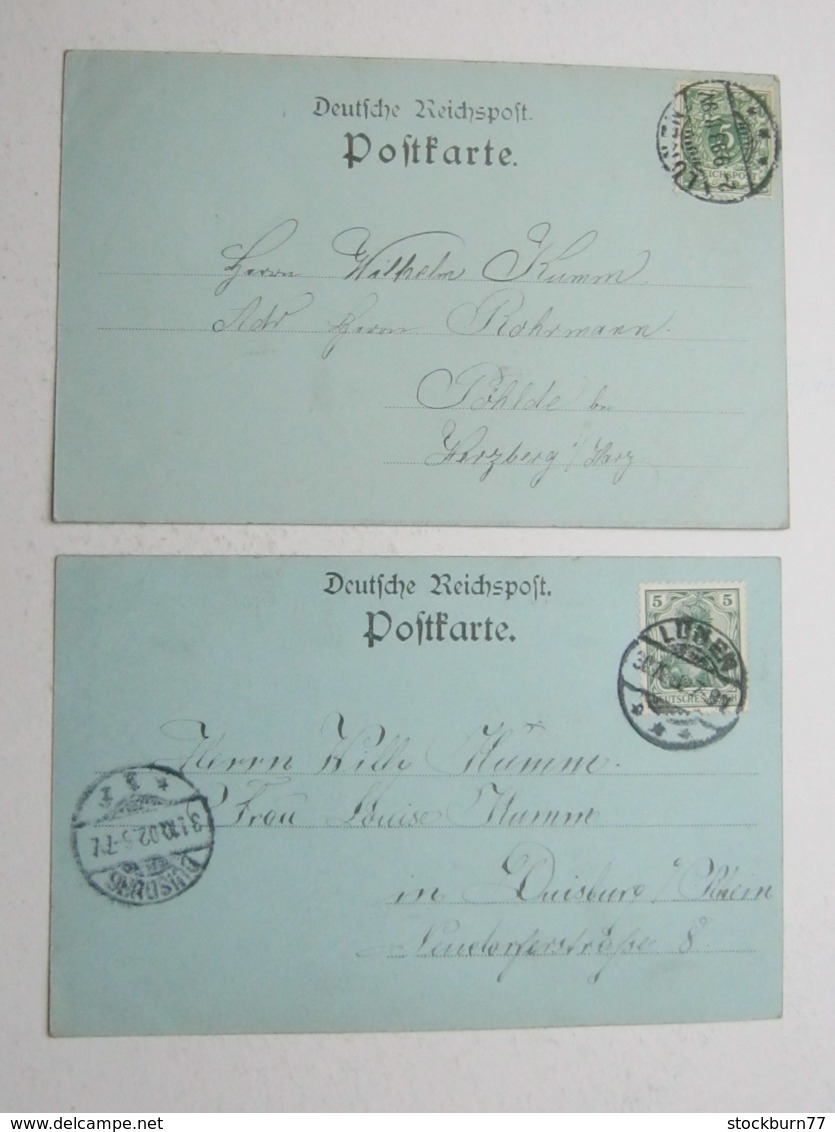 Deutsche Reichspost.
Postkarte.
5
REICHSPOST
LÜNEN
Herrn Wilhelm Kumm.
Adr Herrn Rohrmann.
Pöhlde bei
Herzberg i/ Harz
Deutsche Reichspost.
Postkarte.
5 5
DEUTSCHES REICH
LÜNEN
Herrn Willy Kumm.
Frau Louise Kumm
in Duisburg a/ Rhein
Neudorferstraße 8
31.10.02.6-7V.
DUISBURG
http://www.delcampe.net
stockburn77